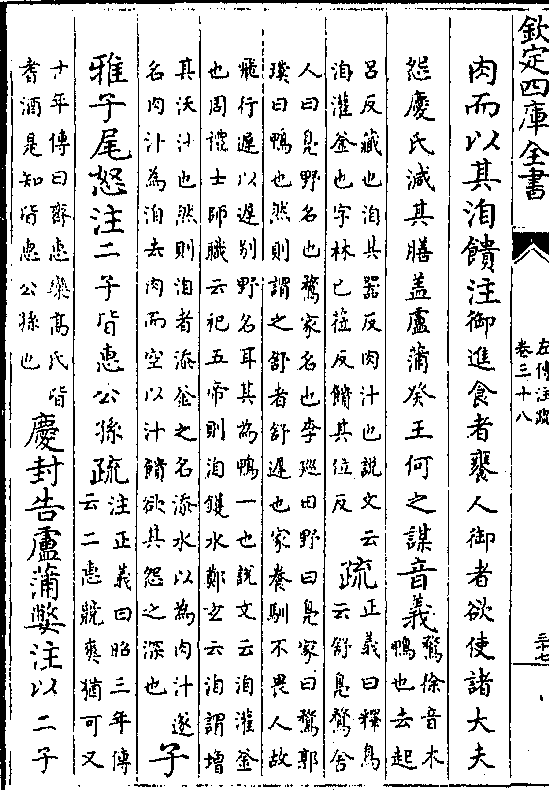 欽定四庫全書
左傳注疏
卷三十八
三十七
肉而以其洎饋注御進食者饔人御者欲使諸大夫
怨慶氏減其膳盖盧蒲癸王何之謀音義
鶩徐音木
鴨也去起
吕反藏也洎其器反肉汁也說文云
洎灌釜也字林已蒞反饋其位反
疏
正義曰釋鳥
云舒鳬鶩舍
人曰鳬野名也鶩家名也李廵曰野曰鳬家曰鶩郭
璞曰鴨也然則謂之舒者舒遲也家養馴不畏人故
飛行遲以遲别野名耳其為鴨一也說文云洎灌釜
也周禮士師職云祀五帝則洎鑊水鄭玄云洎謂增
其沃汁也然則洎者添釜之名添水以為肉汁遂
名肉汁為洎去肉而空以汁饋欲其怨之深也
子
雅子尾怒注二子皆惠公孫疏
注正義曰昭三年傳
云二惠競爽猶可又
十年傳曰齊惠欒高氏皆
耆酒是知皆惠公孫也
慶封告盧蒲嫳注以二子